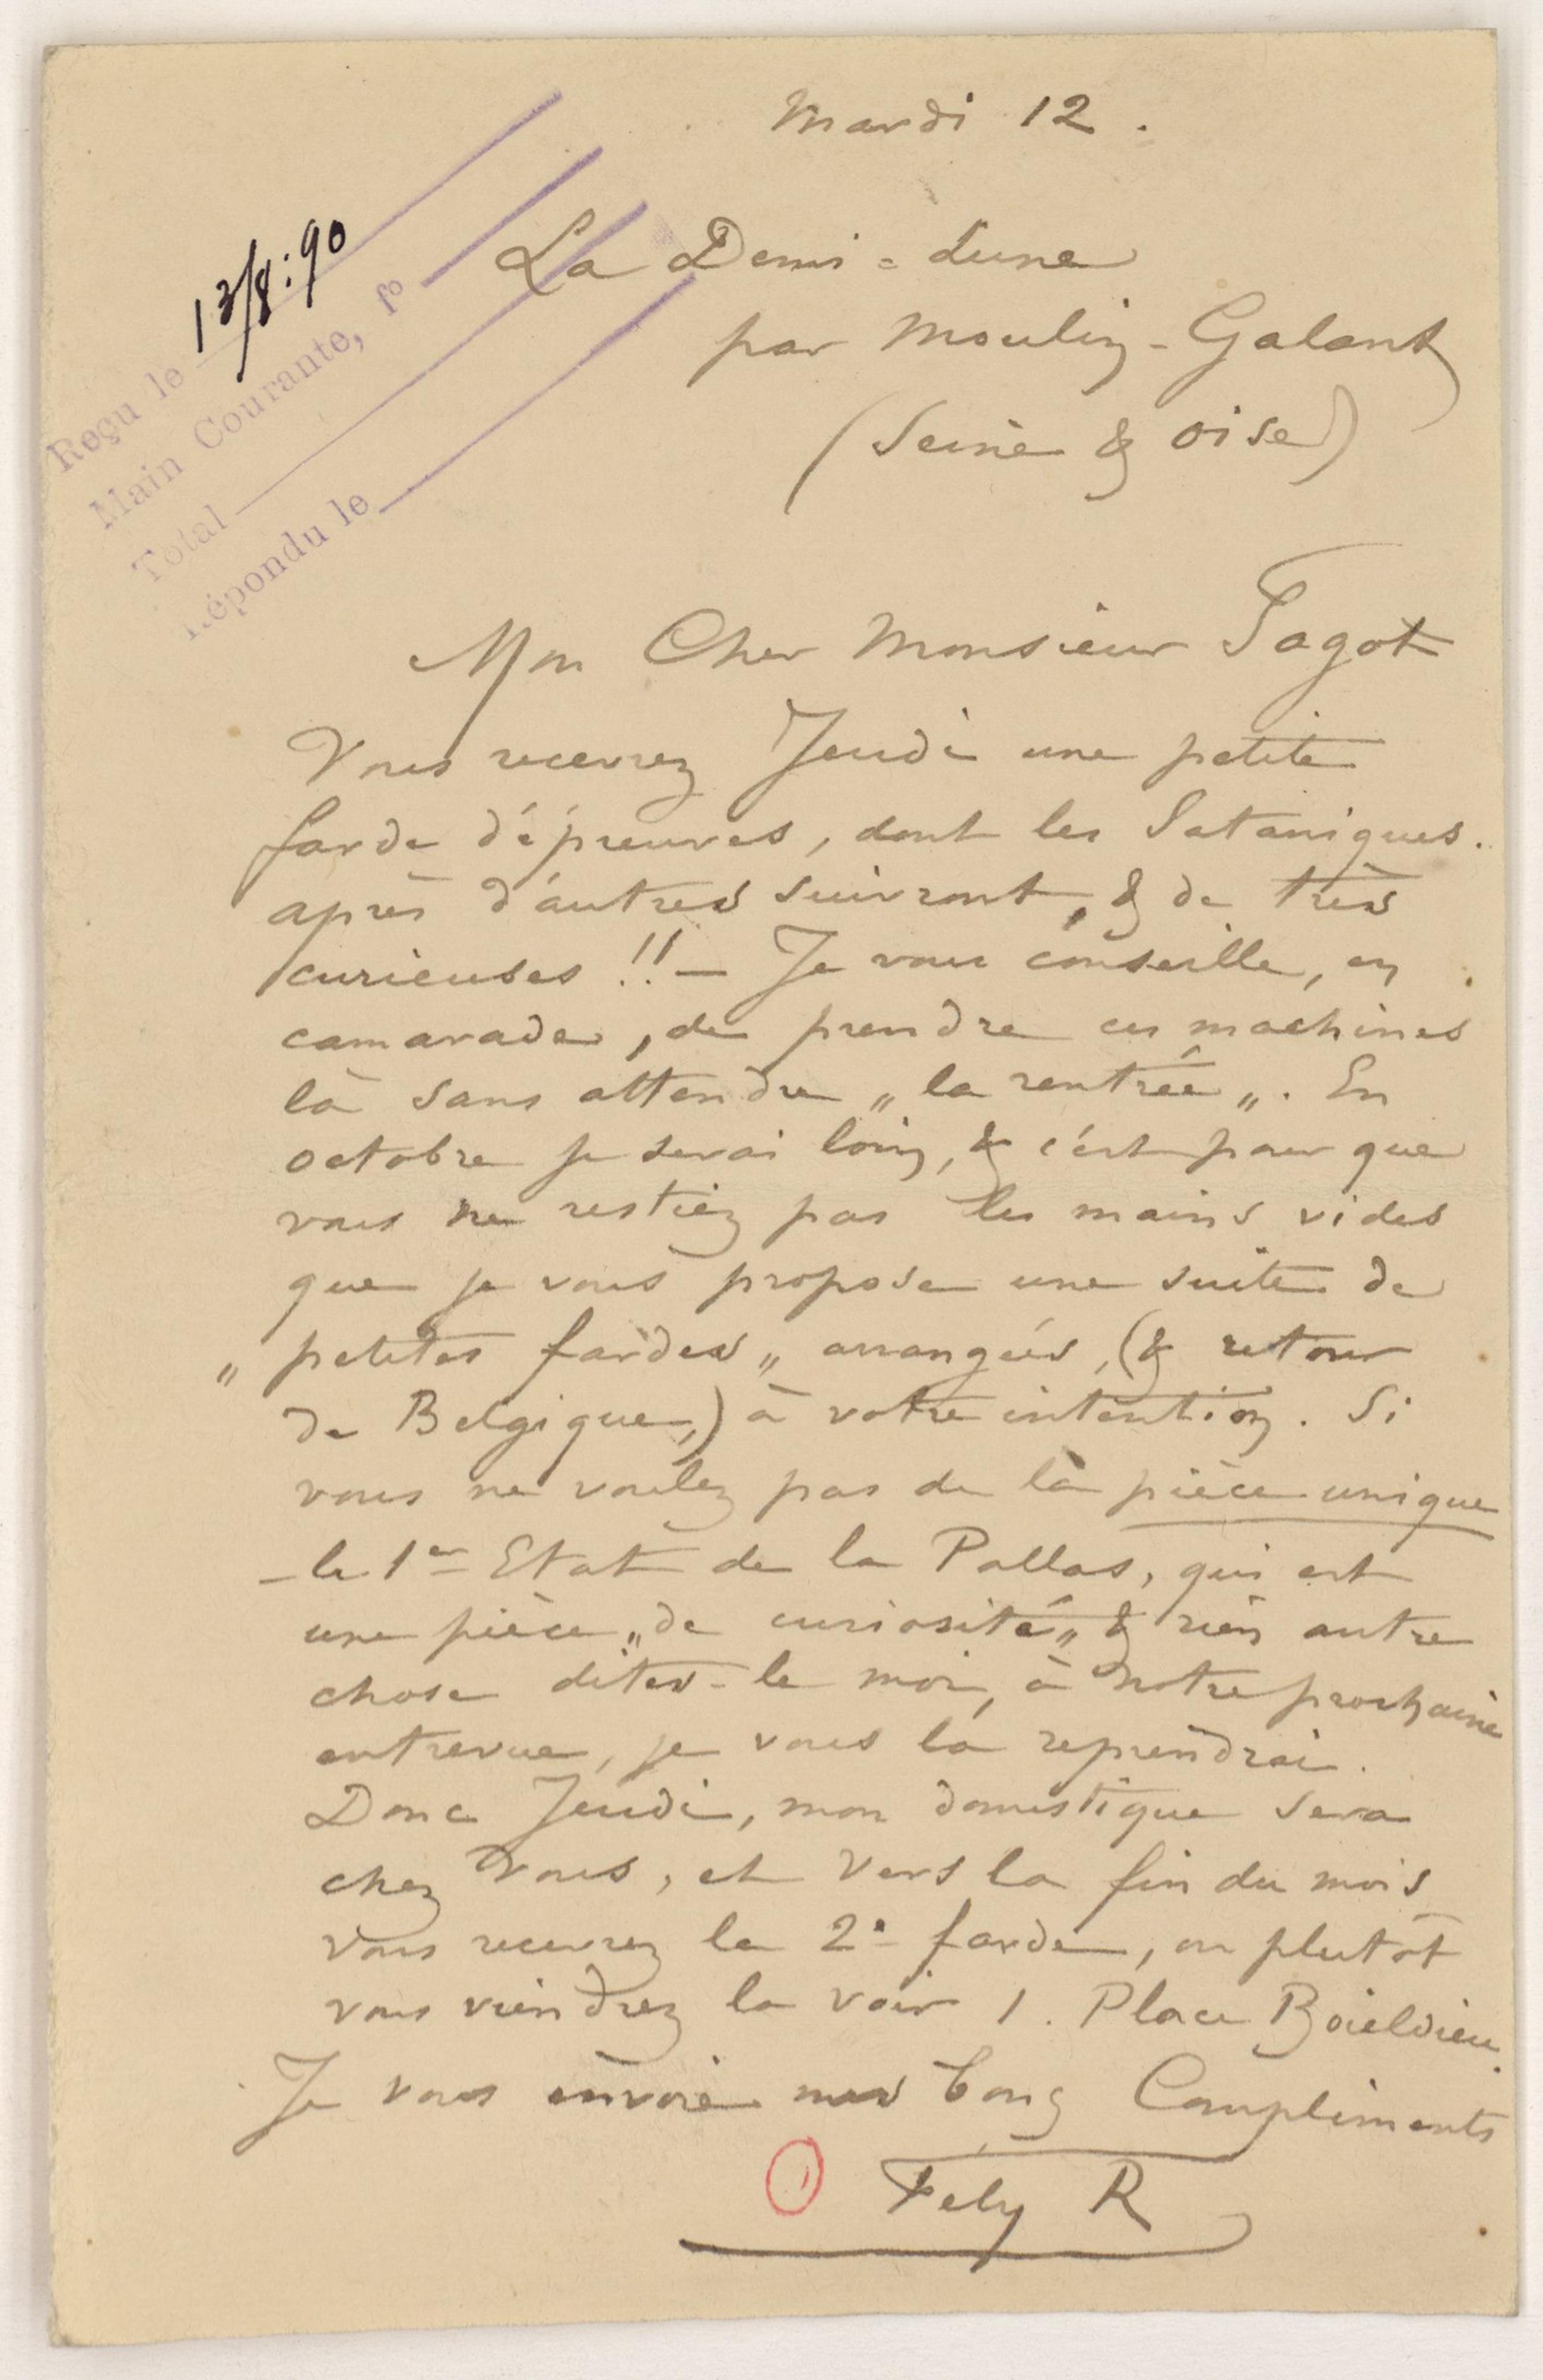 Mardi 12.
Reçu le 13/8:90
Main Courante, fo
Total
Répondu le
La Demi=Lune
par Moulin-Galant
(Seine & Oise)
Mon Cher Monsieur Pagot
Vous recevrez Jeudi une petite
farde d'épreuves, dont les Sataniques.
après d'autres suivront, & de très
curieuses !! — Je vous conseille, en
camarade, de prendre ces machines
là sans attendre „la rentrée„. En
octobre je serai loin, & c'est pour que
vous ne restiez pas les mains vides
que je vous propose une suite de
„petites fardes„ arrangées, (& retour
de Belgique,) à votre intention. Si
vous ne voulez pas de la pièce unique
– le 1er Etat de la Pallas, qui est
une pièce „de curiosité„ & rien autre
chose dites-le moi, à notre prochaine
entrevue, je vous la reprendrai.
Donc Jeudi, mon domestique sera
chez vous, et vers la fin du mois
vous recevrez la 2e farde, ou plutôt
vous viendrez la voir 1. Place Boieldieu.
Je vous envoie mes bons Compliments
1 Fély R